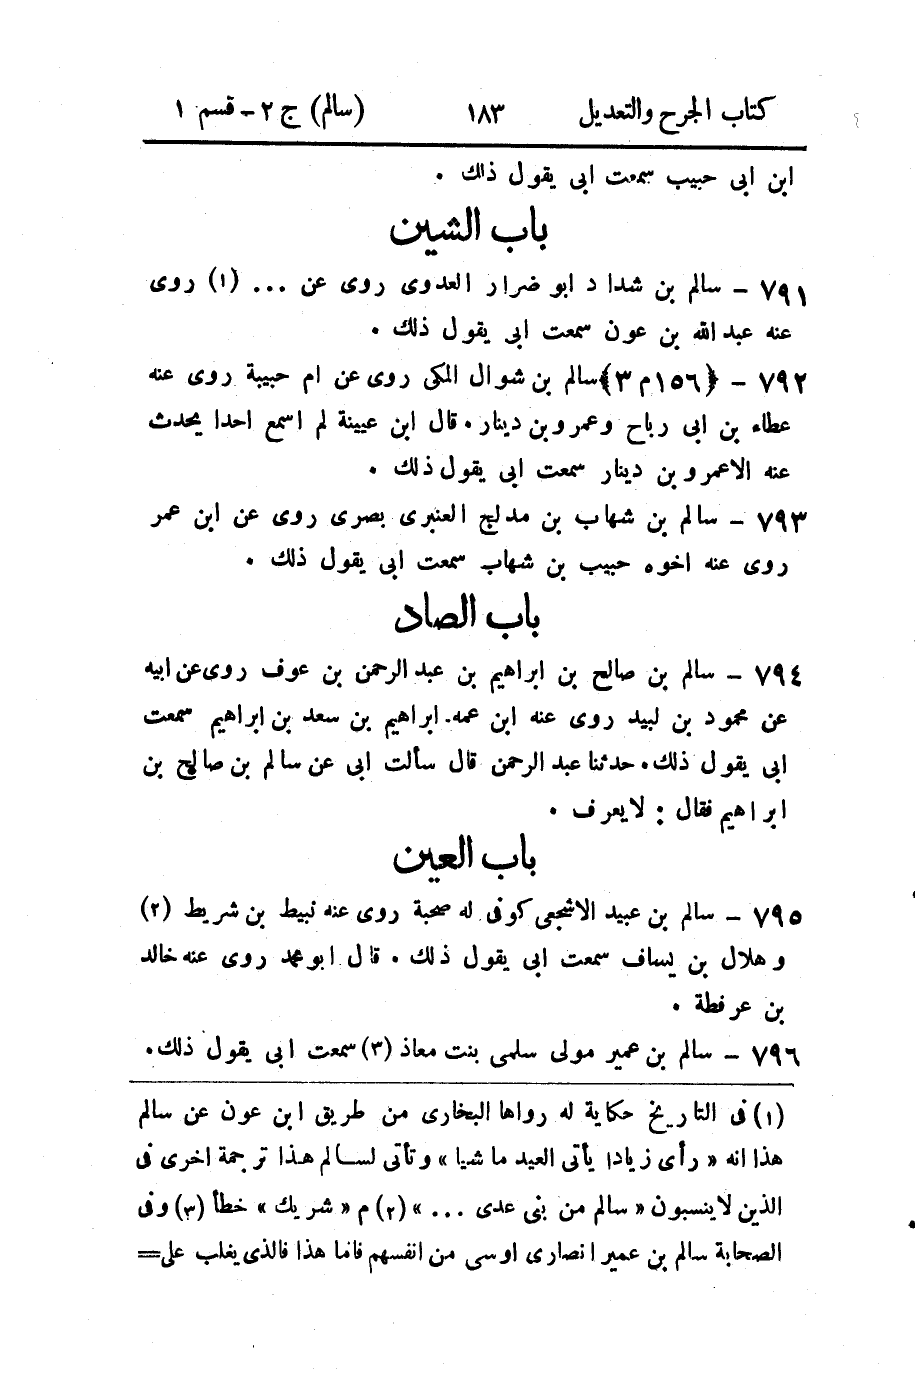 كتاب الجرح والتعديل ١٨٣ (سالم) ج ٢ - قسم ١
ابن ابى حبيب سمعت ابى يقول ذلك .
باب الشين
٧٩١ - سالم بن شداد ابو ضرار العدوى روى عن ... (١) روى
عنه عبد الله بن عون سمعت ابى يقول ذلك .
٧٩٢ - {١٥٦م ٣} سالم بن شوال المكى روى عن ام حبيبة روى عنه
عطاء بن ابى رباح وعمرو بن دينار. قال ابن عيينة لم اسمع احدا يحدث
عنه الا عمرو بن دينار سمعت ابى يقول ذلك .
٧٩٣ - سالم بن شهاب بن مدلج العنبرى بصرى روى عن ابن عمر
روى عنه اخوه حبيب بن شهاب سمعت ابى يقول ذلك .
باب الصاد
٧٩٤ - سالم بن صالح بن ابراهيم بن عبد الرحمن بن عوف روى عن ابيه
عن محمود بن لبيد روى عنه ابن عمه. ابراهيم بن سعد بن ابراهيم سمعت
ابى يقول ذلك. حدثنا عبد الرحمن قال سألت ابى عن سالم بن صالح بن
ابراهيم فقال : لا يعرف .
باب العين
٧٩٥ - سالم بن عبيد الاشجعى كوفى له صحبة روى عنه نبيط بن شريط (٢)
وهلال بن يساف سمعت ابى يقول ذلك . قال ابو محمد روى عنه خالد
بن عرفطة .
٧٩٦ - سالم بن عمير مولى سلمى بنت معاذ (٣) سمعت ابى يقول ذلك.
(١) فى التاريخ حكاية له رواها البخارى من طريق ابن عون عن سالم
هذا انه « رأى زيادا يأتى العيد ماشيا » وتأتى لسالم هذا ترجمة اخرى فى
الذين لا ينسبون « سالم من بنى عدى ... » (٢) م « شريك » خطأ (٣) وفى
الصحابة سالم بن عمير انصارى اوسى من انفسهم فاما هذا فالذى يغلب على=